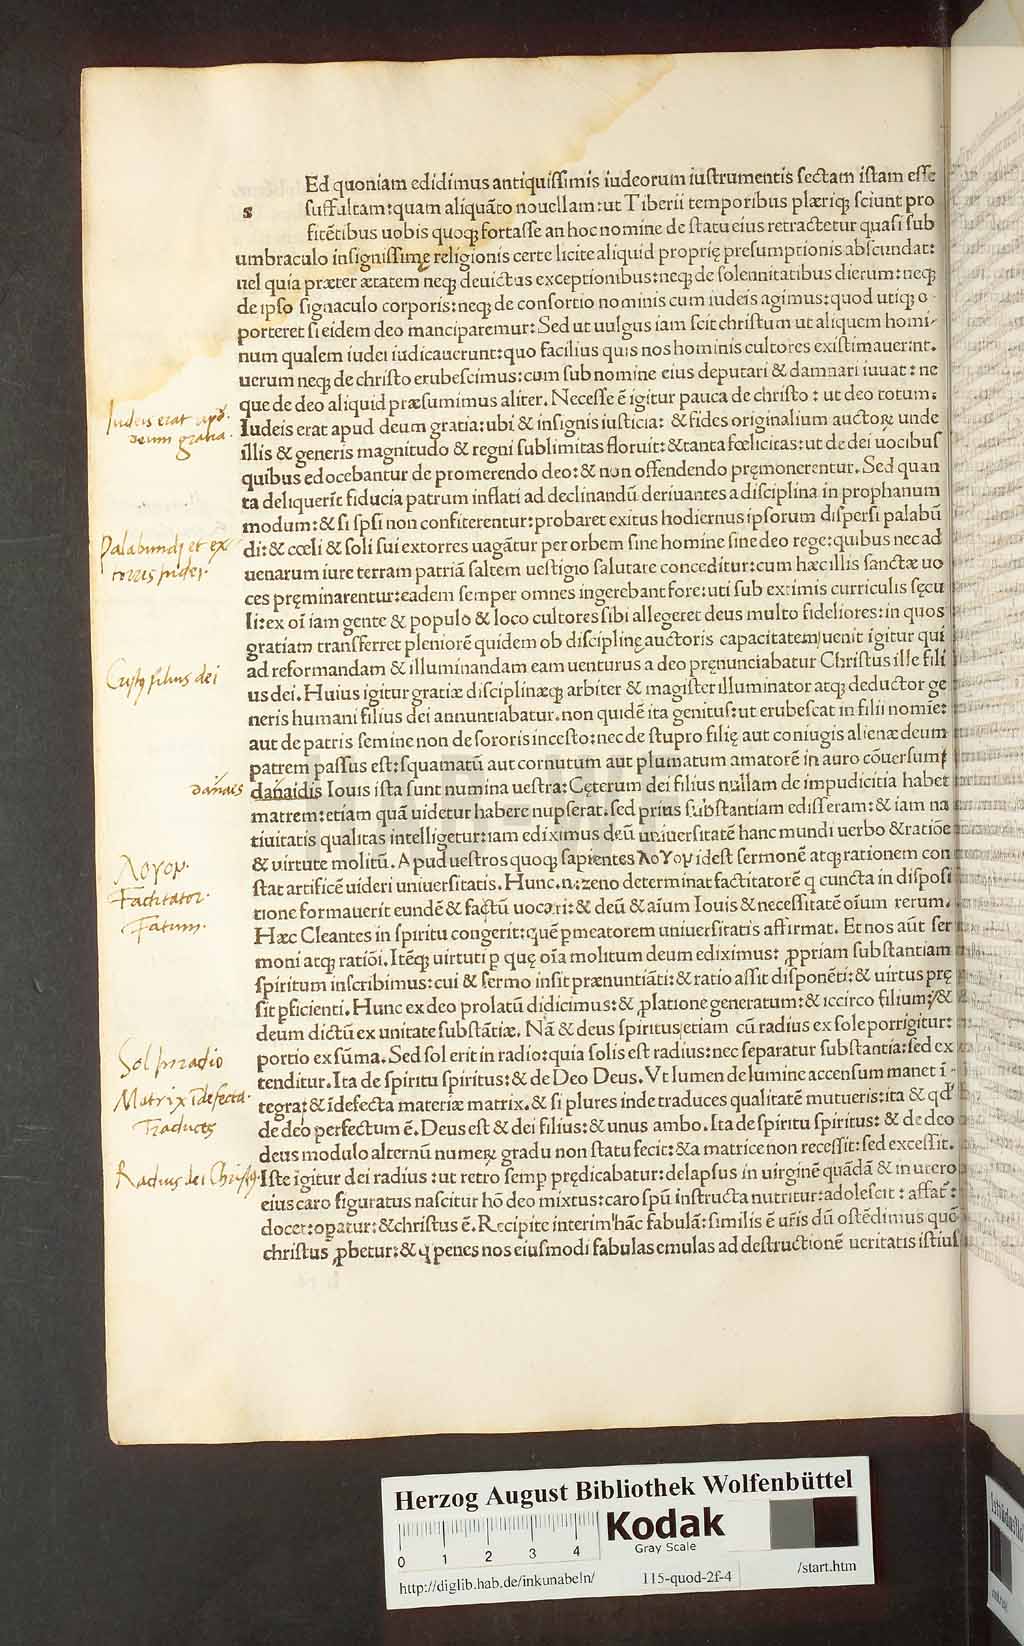 Ed quoniam edidimus antiquissimis iudeorum iustrumentis sectam istam esse
s
suffultam:quam aliquãto nouellam:ut Tiberii temporibus plæriqꝫ sciunt pro
fitẽtibus uobis quoqꝫ fortasse an hoc nomine de statu eius retractetur quasi sub
umbraculo insignissimę religionis certe licite aliquid proprię presumptionis abscundat:
uel quia præter ætatem neqꝫ deuictus exceptionibus:neqꝫ de solennitatibus dierum:neqꝫ
de ipso signaculo corporis:neqꝫ de consortio nominis cum iudeis agimus:quod utiqꝫ o-
porteret si eidem deo manciparemur: Sed ut uulgus iam scit christum ut aliquem homi-
num qualem iudei iudicauerunt:quo facilius quis nos hominis cultores existimauerint.
uerum neqꝫ de christo erubescimus:cum sub nomine eius deputari & damnari iuuat: ne
que de deo aliquid præsumimus aliter. Necesse ẽ igitur pauca de christo: ut deo totum:
Iudeis erat apud
deum gratia.
Iudeis erat apud deum gratia:ubi & insignis iusticia: & fides originalium auctoꝝ unde
illis & generis magnitudo & regni sublimitas floruit:&tanta fœlicitas:ut de dei uocibus
quibus edocebantur de promerendo deo:& non offendendo pręmonerentur. Sed quan
ta deliquerĩt fiducia patrum inflati ad declinandũ deriuantes a disciplina in prophanum
modum:& si ipsi non confiterentur:probaret exitus hodiernus ipsorum dispersi palabũ
Palabundj et ex
torres judei.
di:& cœli & soli sui extorres uagãtur per orbem sine homine sine deo rege:quibus nec ad
uenarum iure terram patriã saltem uestigio salutare conceditur:cum hæcillis sanctæ uo
ces pręminarentur:eadem semper omnes ingerebant fore:uti sub extimis curriculis sęcu
li:ex oĩ iam gente & populo & loco cultores sibi allegeret deus multo fideliores:in quos
gratiam transferret pleniorẽ quidem ob disciplinę auctoris capacitatem uenit igitur qui
ad reformandam & illuminandam eam uenturus a deo pręnunciabatur Christus ille fili
filius dei
us dei. Huius igitur gratiæ disciplinæqꝫ arbiter & magister illuminator atqꝫ deductor ge
neris humani filius dei annuntiabatur. non quidẽ ita genitus:ut erubescat in filii nomie:
aut de patris semine non de sororis incesto:nec de stupro filię aut coniugis alienæ deum
patrem passus est:squamatũ aut cornutum aut plumatum amatorẽ in auro cõuersum
danais
danaidis Iouis ista sunt numina uestra: Cęterum dei filius nullam de impudicitia habet
matrem:etiam quã uidetur habere nupserat. sed prius substantiam edisseram:& iam na
tiuitatis qualitas intelligetur:iam ediximus deũ uniuersitatẽ hanc mundi uerbo &ratiõe
λογον.
& uirtute molitũ. Apud uestros quoqꝫ sapientes λογον idest sermonẽ atqꝫ rationem con
Factitator.
stat artificẽ uideri uniuersitatis. Hunc.n:zeno determinat factitatorẽ q cuncta in disposi
Fatum.
tione formauerit eundẽ & factũ uocari:& deũ & aĩum Iouis & necessitatẽ oĩum rerum.
Hæc Cleantes in spiritu congerit:quẽ ꝑmeatorem uniuersitatis affirmat. Et nos aũt ser
moni atqꝫ ratiõi. Itẽqꝫ uirtuti ꝑ quę oĩa molitum deum ediximus: ꝓpriam substantiam
spiritum inscribimus:cui & sermo insit prænuntiãti:& ratio assit disponẽti:& uirtus prę
sit ꝑficienti. Hunc ex deo prolatũ didicimus:& ꝓlatione generatum:& iccirco filium:&
deum dictũ ex unitate substãtiæ. Nã & deus spiritus etiam cũ radius ex sole porrigitur:
Sol in radio
portio ex sũma. Sed sol erit in radio:quia solis est radius:nec separatur substantia:sed ex
tenditur. Ita de spiritu spiritus:& de Deo Deus. Vt lumen de lumine accensum manet ĩ-
Matrix ĩdefecta.
tegra:& ĩdefecta materiæ matrix. & si plures inde traduces qualitatẽ mutueris:ita & qd
Traduces
de deo perfectum ẽ. Deus est & dei filius:& unus ambo. Ita de spiritu spiritus: & de deo
deus modulo alternũ numeꝝ gradu non statu fecit:&a matrice non recessit:sed excessit.
Radius dei
Iste igitur dei radius :ut retro semp prędicabatur:delapsus in uirginẽ quãdã & in utero
eius caro figuratus nascitur hõ deo mixtus:caro spũ instructa nutritur:adolescit: affat:
docet:opatur:&christus ẽ. Recipite interim hãc fabulã:similis ẽ uris dũ ostẽdimus quõ
christus ꝓbetur:& q penes nos eiusmodi fabulas emulas ad destructionẽ ueritatis istius
HAB-WF
Herzog August Bibliothek Wolfenbüttel
Kodak
Gray Scale
0 1 2 3 4
http://diglib.hab.de/inkunabeln/ 115-quod-2f-4 /start.htm